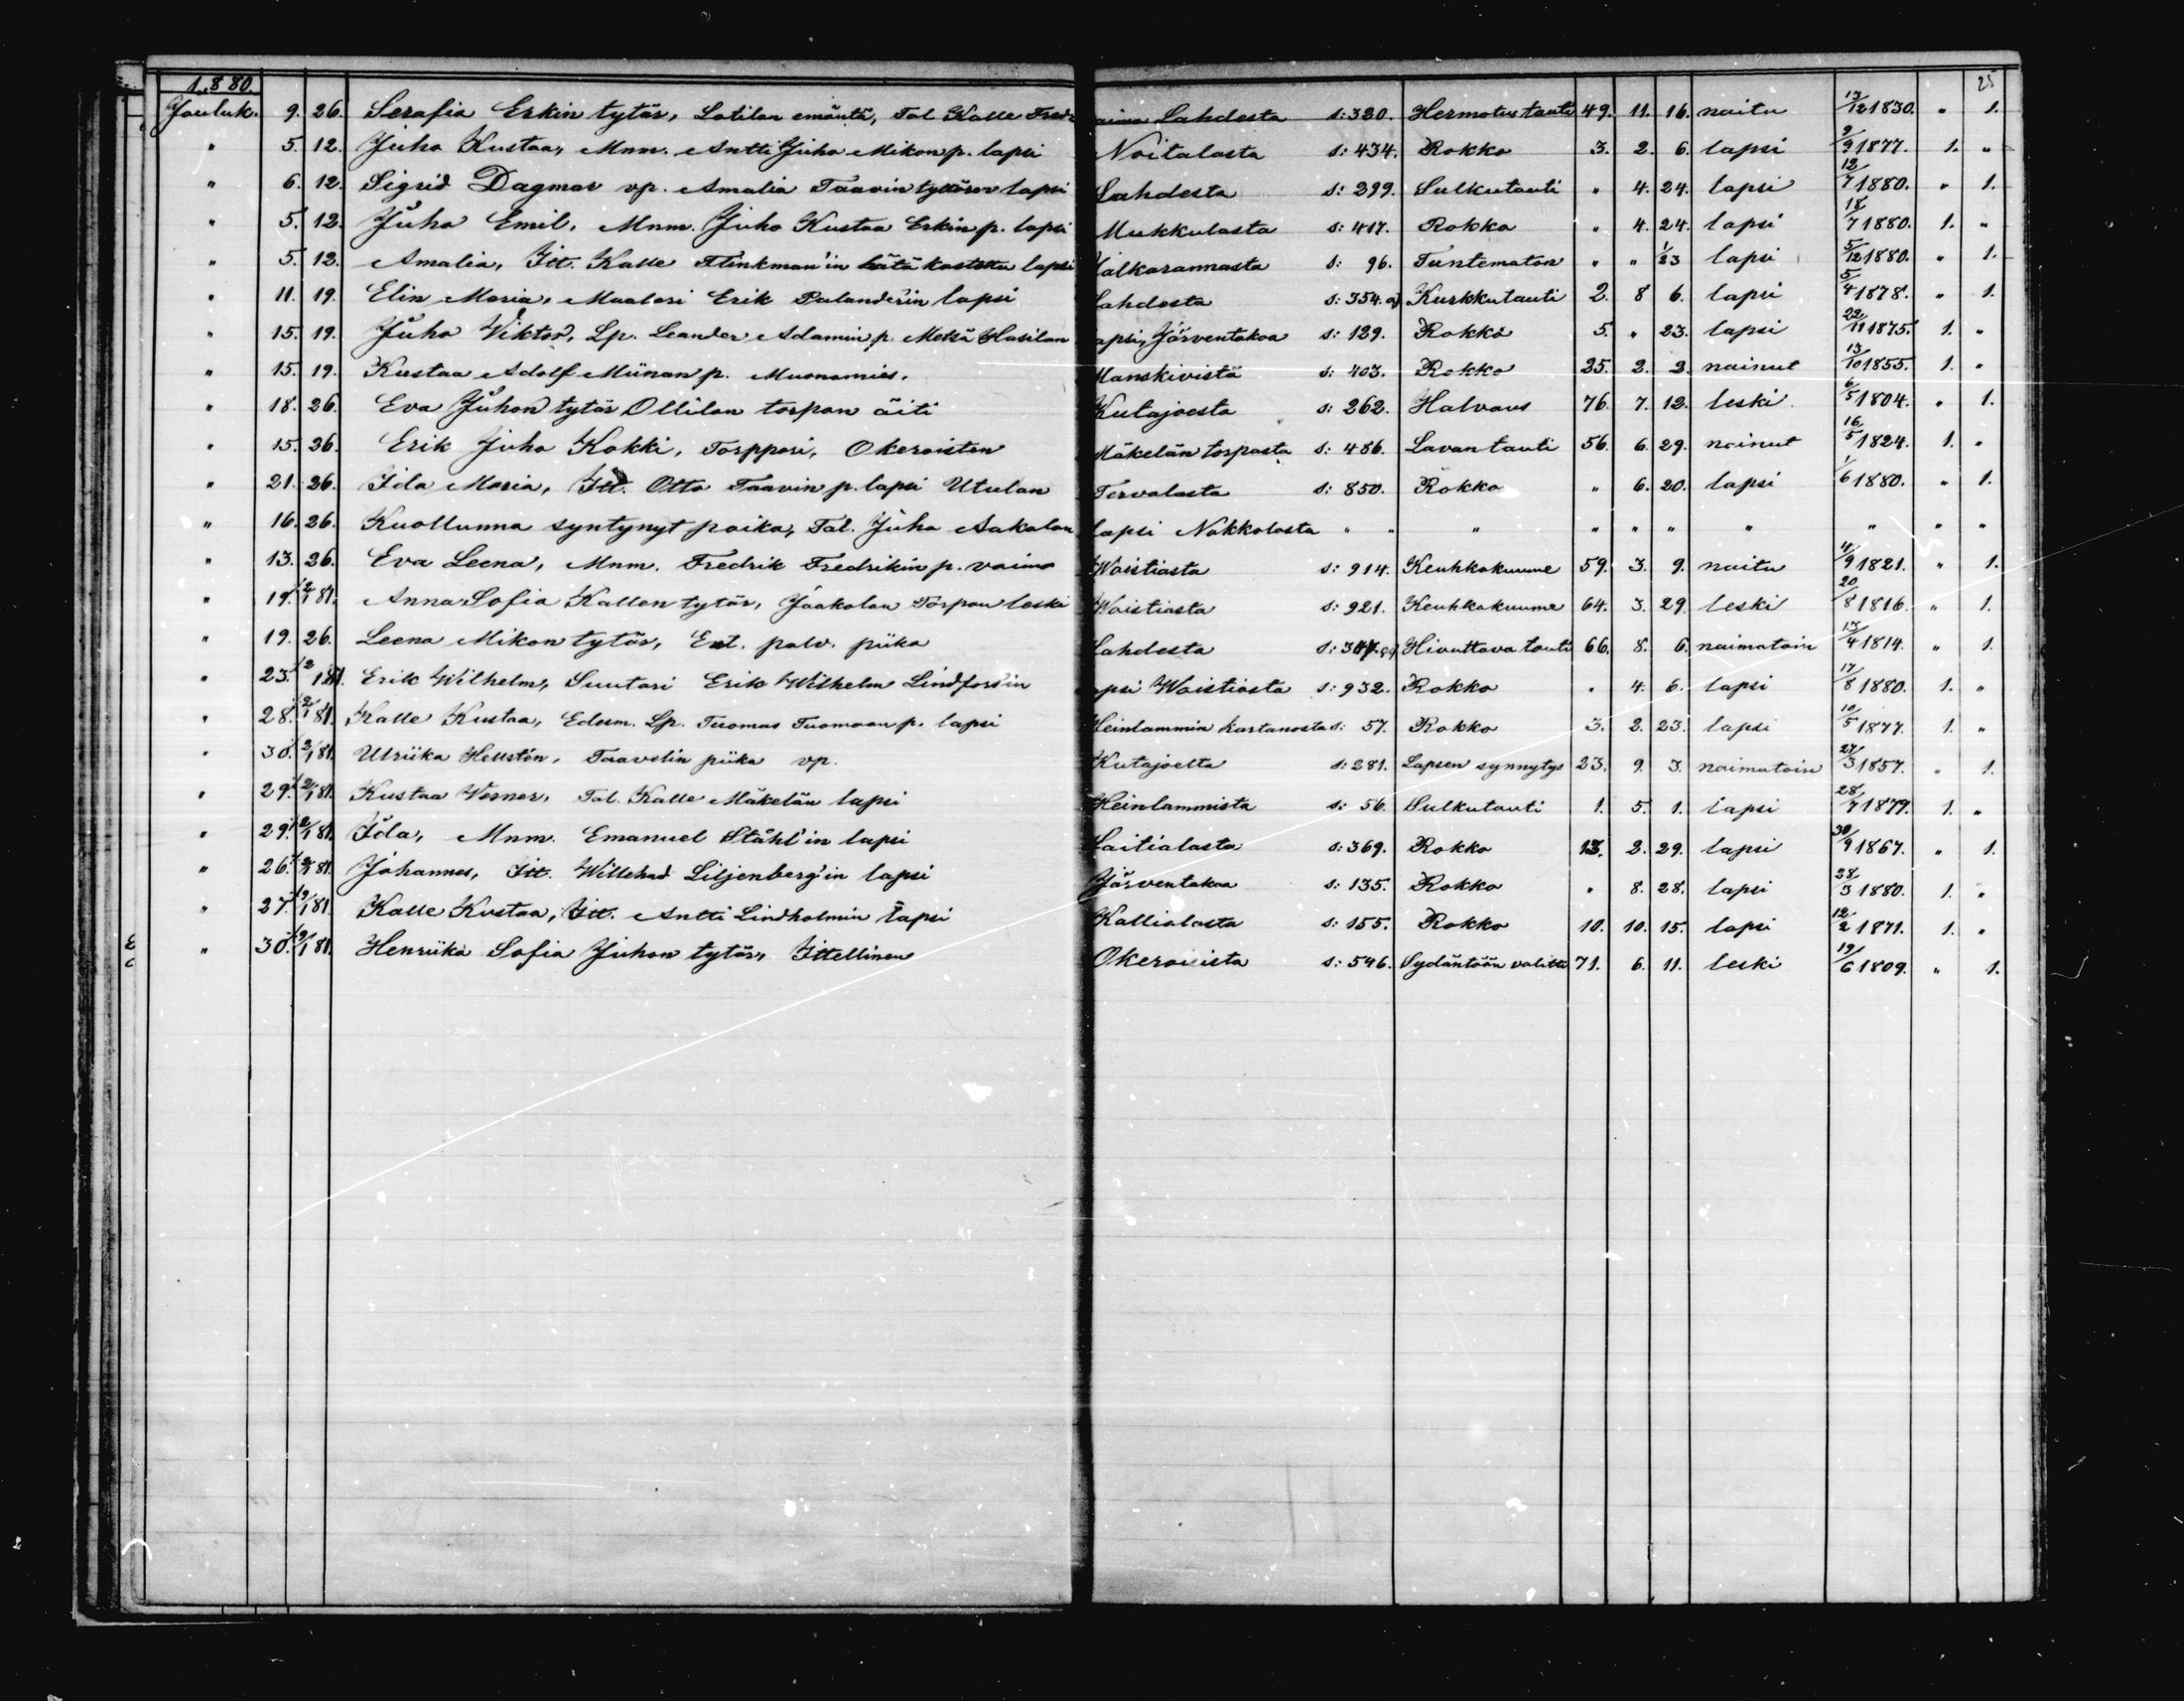 25
1880.
Jouluk. 9. 26. Serafia Erkin tytär, Lotilan emäntä, Tal. Kalle Fredr aima Lahdesta s: 320. Hermotus tauti 49. 11. 16. naitu 13/12 1830. " 1.
" 5. 12. Juho Kustaa, Mnm. Antti Juho Mikon p. lapsi Noitalasta s: 434. Rokko 3. 2. 6. lapsi 9/9 1877. 1. "
" 6. 12. Sigrid Dagmar vp. Amalia Taavin tyttären lapsi Lahdesta s: 299. Sulkutauti " 4. 24. lapsi 12/7 1880. " 1.
" 5. 12. Juho Emil, Mnm. Juho Kustaa Erkin p. lapsi Mukkulasta s: 417. Rokko " 4. 24. lapsi 18/7 1880. 1. "
" 5. 12. Amalia, Itt. Kalle Flinkman'in hätä kastettu lapsi Jalkarannasta s: 96. Tuntematon " " 1/23 lapsi 5/12 1880. " 1.
" 11. 19. Elin Maria, Maalari Erik Palander'in lapsi Lahdesta s: 354. a) Kurkkutauti 2. 8 6. lapsi 5/4 1878. " 1.
" 15. 19. Juho Viktor, Lp. Leander Adamin p. Metsä Hasilan lapsi, Järventakoa s: 129. Rokko 5. " 23. lapsi 22/11 1875. 1. "
" 15. 19. Kustaa Adolf Miinan p. Muonamies. Manskivistä s: 403. Rokko 25. 2. 2. nainut 13/10 1855. 1. "
" 18. 26. Eva Juhon tytär Ollilan torpan äiti Kutajoesta s: 262. Halvaus 76. 7. 12. leski 6/5 1804. " 1.
" 15. 26. Erik Juho Kokki, Torppari, Okeroisten Mäkelän torpasta s: 486. Lavantauti 56. 6. 29. nainut 16/5 1824. 1. "
" 21. 26. Ida Maria, Itt. Otto Taavin p. lapsi Utulan Tervalasta s: 850. Rokko " 6. 20. lapsi 1/6 1880. " 1.
" 16. 26. Kuollunna syntynyt poika, Tal. Juho Aakalan lapsi Nokkolasta " " " " " " " " " "
" 13. 26. Eva Leena, Mnm. Fredrik Fredrikin p. vaimo Woistiasta s: 914. Keuhkokuume 59. 3. 9. naitu 4/9 1821. " 1.
" 19. 2/1 81. Anna Sofia Kallen tytär, Jaakolan Torpan leski Woistiasta s: 921. Keuhkokuume 64. 3. 29. leski 20/8 1816. " 1.
" 19. 26. Leena Mikon tytär, Ent. palv. piika Lahdesta Hivuttava tauti 66. 8. 6. naimatoin 13/4 1814. " 1.
" 23. 2/1 81. Erik Wilhelm, Suutari Erik Wilhelm Lindfors'in lapsi Woistiasta s: 932. Rokko " 4. 6. lapsi 17/8 1880. 1. "
" 28. 2/1 81. Kalle Kustaa, Edesm. Lp. Tuomas Tuomaan p. lapsi Heinlammin kartanosta s: 57. Rokko 3. 2. 23. lapsi 10/5 1877. 1. "
" 30. 2/1 81. Ulriika Hellstén, Taavelin piika vp. Kutajoelta s: 281. Lapsen synnytys 23. 9. 3. naimatoin 27/3 1857. " 1.
" 29. 2/1 81. Kustaa Werner, Tal. Kalle Mäkelän lapsi Heinlammista s: 56. Sulkutauti 1. 5. 1. lapsi 28/7 1879. 1. "
" 29. 2/1 81. Ida, Mnm. Emanuel Ståhl'in lapsi Laitialasta s: 369. Rokko 13. 2. 29. lapsi 30/9 1867. " 1.
" 26. 2/1 81. Johannes, Itt. Willehad Liljenberg'in lapsi Järventakoa s: 135. Rokko " 8. 28. lapsi 28/3 1880. 1. "
" 27. 9/1 81. Kalle Kustaa, Itt. Antti Lindholmin lapsi Kallialasta s: 155. Rokko 10. 10. 15. lapsi 12/2 1871. 1. "
" 30. 9/1 81. Henriika Sofia Juhon tytär, Itellinen Okeroisista s: 546. Sydäntään valitti 71. 6. 11. leski 19/6 1809. " 1.